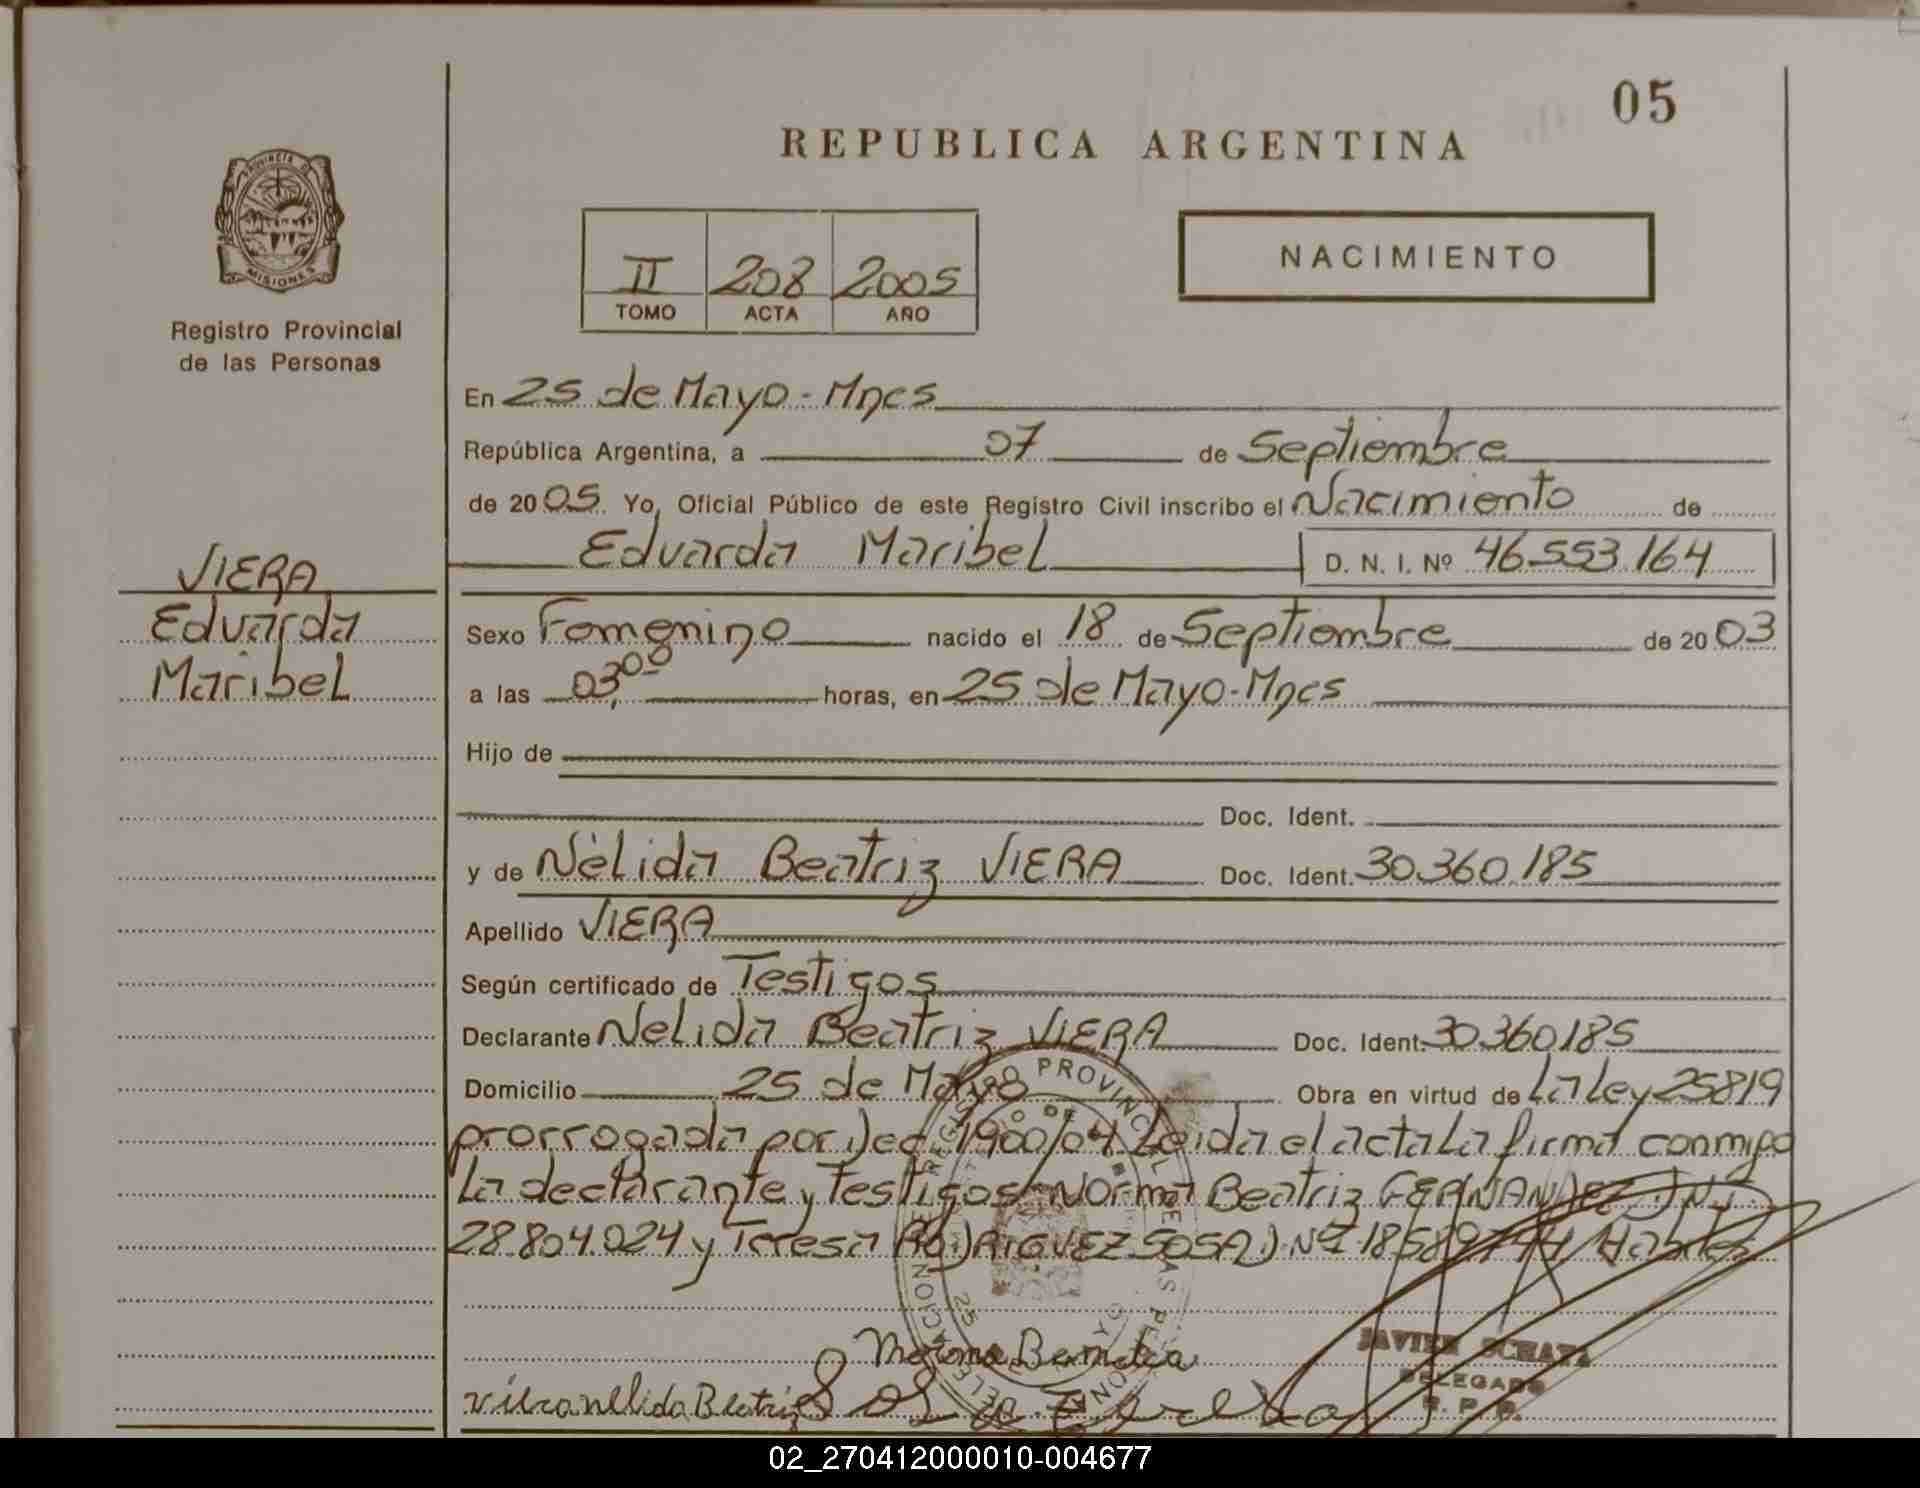 05
REPUBLICA ARGENTINA
PROVINCIA DE
MISIONES
Registro Provincial
de las Personas
II 208 2005
TOMO ACTA AÑO
NACIMIENTO
En 25 de Mayo - Mnes
República Argentina, a 07 de Septiembre
de 2005. Yo, Oficial Público de este Registro Civil inscribo el Nacimiento de
Eduarda Maribel D. N. I. Nº 46.553.164
VIERA
Eduarda
Maribel
Sexo Femenino nacido el 18 de Septiembre de 2003
a las 03,00 horas, en 25 de Mayo - Mnes
Hijo de
Doc. Ident.
y de Nèlida Beatriz VIERA Doc. Ident. 30.360.185
Apellido VIERA
Según certificado de Testigos
Declarante Nelida Beatriz VIERA Doc. Ident. 30.360.185
Domicilio 25 de Mayo Obra en virtud de La Ley 25819
prorrogada por Dec. 1900/04 Leida el acta La firma conmigo
La declarante y Testigos Norma Beatriz FERNANDEZ DNI
28.804.024 y Teresa RODRIGUEZ SOSA DNI 18589744
Viera nelida Beatriz
JAVIER
DELEGADO
R. P. P.
02_270412000010-004677